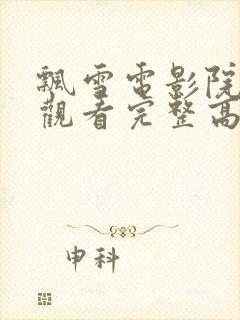 飄雪電影院
觀看完整高
申科